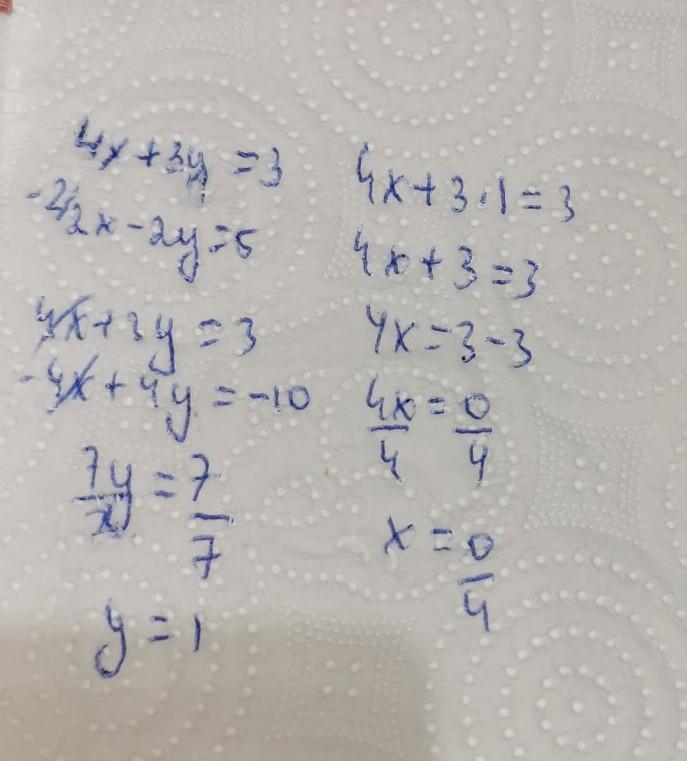 4x+3y=3
-2/2x-2y=5
4x+3y=3
-4x+4y=-10
7y/7=7/7
y=1
4x+3.1=3
4x+3=3
4x=3-3
4x/4=0/4
x=0/4